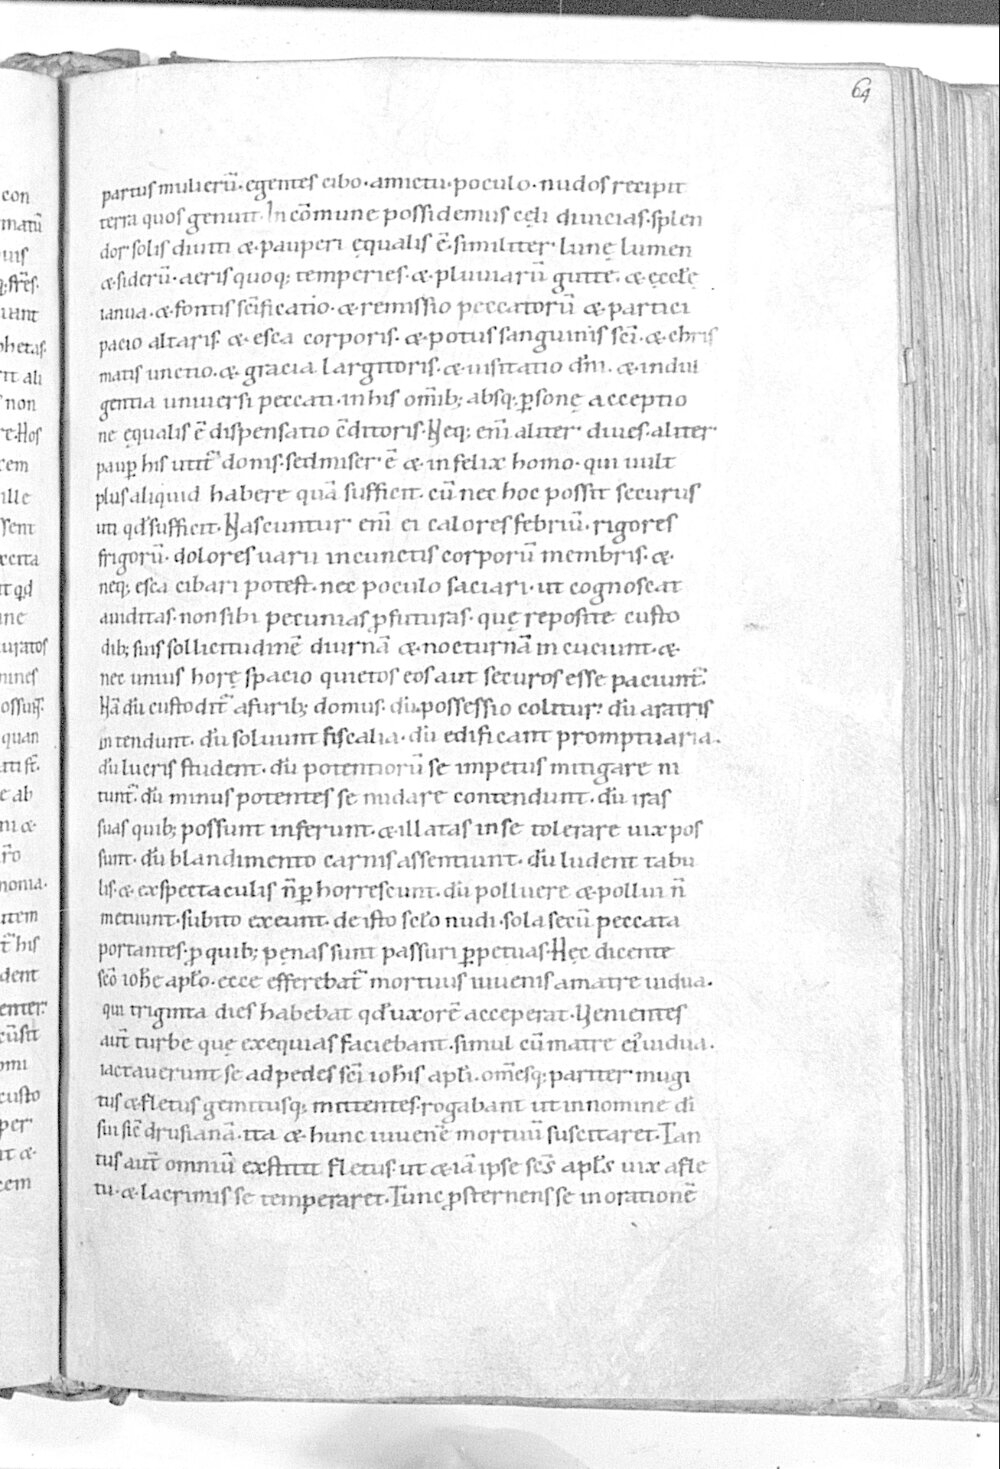 64
partus mulierū. egentes cibo. amictu. poculo. nudos recipit
terra quos genuit. In cōmune possidemus cęli diuicias. splen
dor solis diuiti & pauperi ęqualis ē. similiter lunę lumen
& siderū. aeris quoq; temperies. & pluuiarū guttę. & ęcclę
ianua. & fontis scīficatio. & remissio peccatorū & partici
pacio altaris. & esca corporis. & potus sanguinis scī. & chris
matis unctio. & gracia largitoris. & uisitatio dnī. & indul
gentia uniuersi peccati. in his omīb; absq; psonę acceptio
ne ęqualis ē dispensatio cōditoris. Neq; enī aliter diues. aliter
paup his utit donis. sed miser ē & infelix homo. qui uult
plus aliquid habere quā sufficit. cū nec hoc possit securus
uti qđ sufficit. Nascuntur enī ei calores febriū. rigores
frigorū. dolores uarii in cunctis corporū membris. &
neq; esca cibari potest. nec poculo saciari. ut cognoscat
auiditas. non sibi pecunias pfuturas. quę repositę custo
dib; suis sollicitudinē diurnā & nocturnā incuciunt. &
nec unius horę spacio quietos eos aut securos esse paciunt.
Nā dū custodit a furib; domus. dū possessio colitur. dū aratris
intendunt. dū soluunt fiscalia. dū edificant promptuaria.
dū lucris student. dū potentiorū se impetus mitigare ni
tunt. dū minus potentes se nudare contendunt. dū iras
suas quib; possunt inferunt. & illatas in se tolerare uix pos
sunt. dū blandimento carnis assentiunt. dū ludent tabu
lis. & ex spectaculis n̄ phorrescunt. dū polluere & pollui n̄
metuunt. subito exeunt. de isto sclo nudi. sola secū peccata
portantes. p quib; pęnas sunt passuri ppetuas. Hęc dicente
scō iohē aplo. ecce efferebat mortuus iuuenis a matre uidua.
qui triginta dies habebat qđ uxorē acceperat. Uenientes
aūt turbe quę exequias faciebant. simul cū matre ei' uidua.
iactauerunt se ad pedes scī iohīs aplī. omēsq; pariter mugi
tus & fletus gemitusq; mittentes. rogabant ut in nomine dī
sui sic drusianā. ita & hunc iuuenē mortuū suscitaret. Tan
tus aūt omniū exstitit fletus ut & iā ipse scs apls uix a fle
tu. & lacrimis se temperaret. Tunc psternens se in orationē